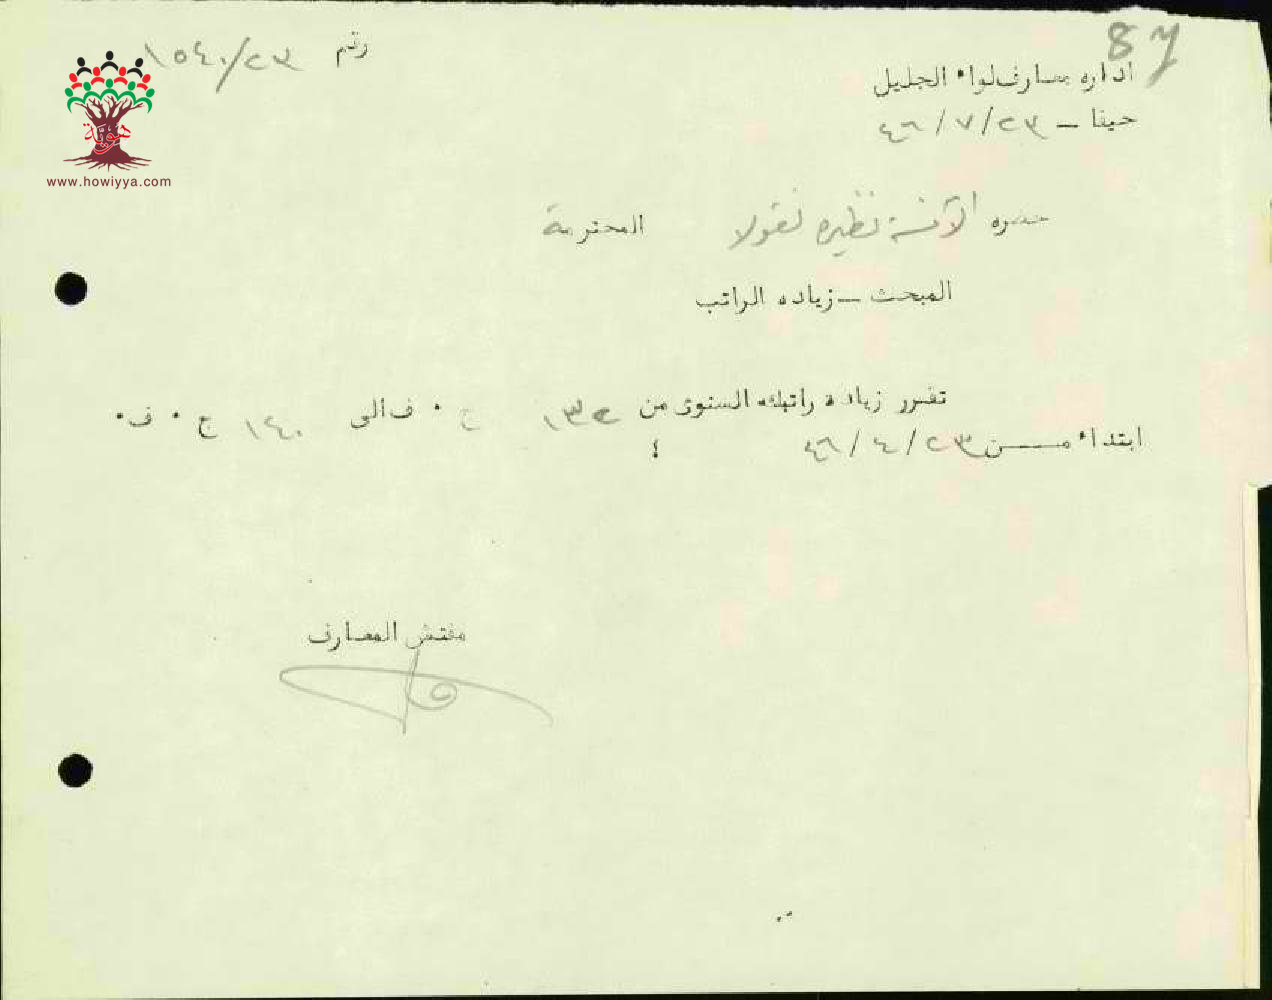 87
رقم ١٥٤٠/٢٣
اداره معارف لواء الجليل
حيفا – ٢٣/٧/٤٦
هويّة
www.howiyya.com
حضره الآنسة نظيره نقولا المحترمة
المبحث – زياده الراتب
تقرر زيادة راتبك السنوى من ١٣٢ ج ٠ ف الى ١٤٠ ج ٠ ف٠
ابتداء مــــن ٢٣/٤/٤٦ ؛
مفتش المعارف